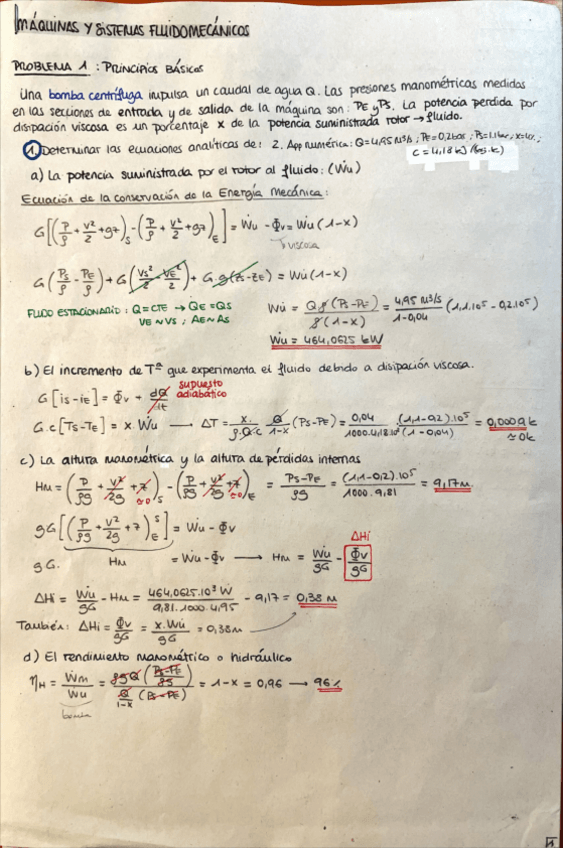 MÁQUINAS Y SISTEMAS FLUIDOMECÁNICOS
PROBLEMA 1 : PRINCIPIOS BÁSICOS
Una bomba centrífuga impulsa un caudal de agua Q. Las presiones manométricas medidas
en las secciones de entrada y de salida de la máquina son: PE y PS. La potencia perdida por
disipación viscosa es un porcentaje x de la potencia suministrada rotor → fluido.
1. Determinar las ecuaciones analíticas de: 2. App numérica: Q = 4,95 m³/s ; PE = 0,2 bar ; PS = 1.1 bar, x = 4%.
C = 4,18 kJ/(kg.k)
a) La potencia suministrada por el rotor al fluido: (Ẇu)
Ecuación de la conservación de la Energía Mecánica:
G[(P/ρ + v²/2 + gz)S - (P/ρ + v²/2 + gz)E] = Ẇu - Φv = Ẇu(1-x)
viscosa
G(PS/ρ - PE/ρ) + G(VS²/2 - VE²/2) + G.g(zS - zE) = Ẇu(1-x)
FLUIDO ESTACIONARIO: Q = CTE → QE = QS
VE ~ VS ; AE ~ AS
Ẇu = Qρ(PS-PE)/ρ(1-x) = 4,95 m³/s / 1-0,04 (1,1.10⁵ - 0,2.10⁵)
Ẇu = 464,0625 kW
b) El incremento de Tª que experimenta el fluido debido a disipación viscosa.
G[iS - iE] = Φv + dQ/dt supuesto adiabático
G.c[TS-TE] = x.Ẇu → ΔT = x/ρ.Q.c · Q/1-x (PS-PE) = 0,04/1000.4,18.10³ · (1,1-0,2).10⁵/(1-0,04) = 0,0009 k
≈ 0k
c) La altura manométrica y la altura de pérdidas internas
Hm = (P/ρg + v²/2g + z)S - (P/ρg + v²/2g + z)E = PS-PE/ρg = (1,1-0,2).10⁵/1000.9,81 = 9,17m
≈0 ≈0
gG[(P/ρg + v²/2g + z)SE] = Ẇu - Φv
gG. Hm = Ẇu - Φv → Hm = Ẇu/gG - Φv/gG
ΔHi
ΔHi = Ẇu/gG - Hm = 464,0625.10³ W/9,81.1000.4,95 - 9,17 = 0,38 m
También: ΔHi = Φv/gG = x.Ẇu/gG = 0,38m
d) El rendimiento manométrico o hidráulico
ηH = Ẇm/Ẇu = ρgQ(PS-PE/ρg) / Q/1-x (PS-PE) = 1-x = 0,96 → 96%
bomba